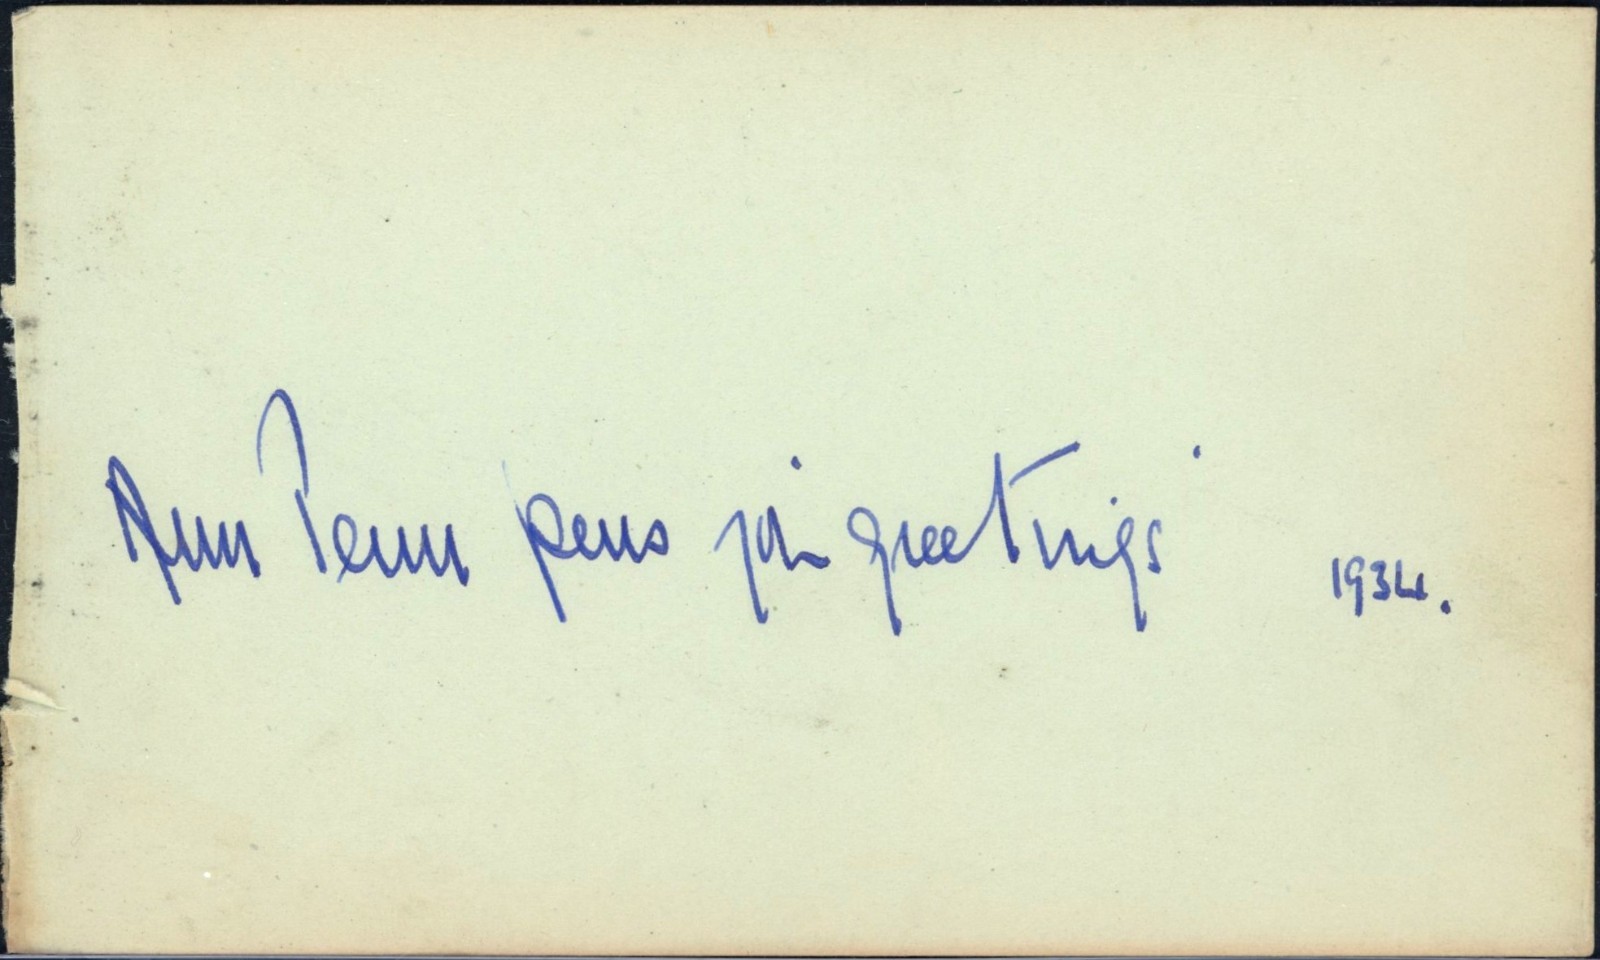 Ann Penn pens you greetings 1934.